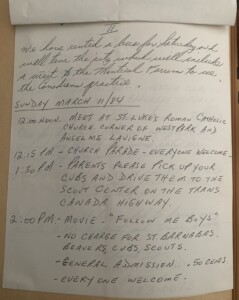 II
We have rented a bus for Saturday and
will tour the city which will include
a visit to the Montreal Forum to see
the Canadiens practice.
SUNDAY MARCH 11/84
12:00 NOON. MEET AT ST. LUKE'S ROMAN CATHOLIC
CHURCH CORNER OF WESTPARK AND
ANSELME LAVIGNE.
12:15 PM - CHURCH PARADE - EVERYONE WELCOME -
1:30 PM - PARENTS PLEASE PICK UP YOUR
CUBS AND DRIVE THEM TO THE
SCOUT CENTER ON THE TRANS
CANADA HIGHWAY.
2:00 PM - MOVIE - "FOLLOW ME BOYS"
- NO CHARGE FOR ST. BARNABAS
BEAVERS, CUBS, SCOUTS.
- GENERAL ADMISSION . 50 CENTS
- EVERYONE WELCOME -